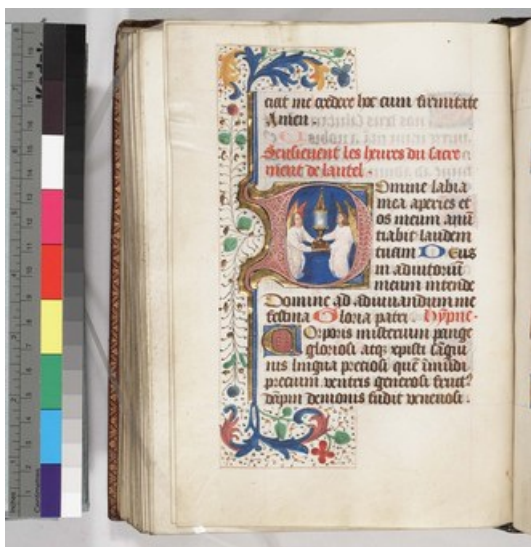 ciat me credere hoc cum firmitate
Amen.
Sensieuent les heures du sacre
ment de lautel.
Domine labia
mea aperies et
os meum anū
tiabit laudem
tuam Deus
in adiutoriū
meum intende
Domine ad adiuuandum me
festina Gloria patri. Hÿpne.
Corporis misterium pange
gloriosi atq xpisti sāgui
nis lingua preciosi quē mūdi
precium ventris generosi
demonis fudit venenosi.